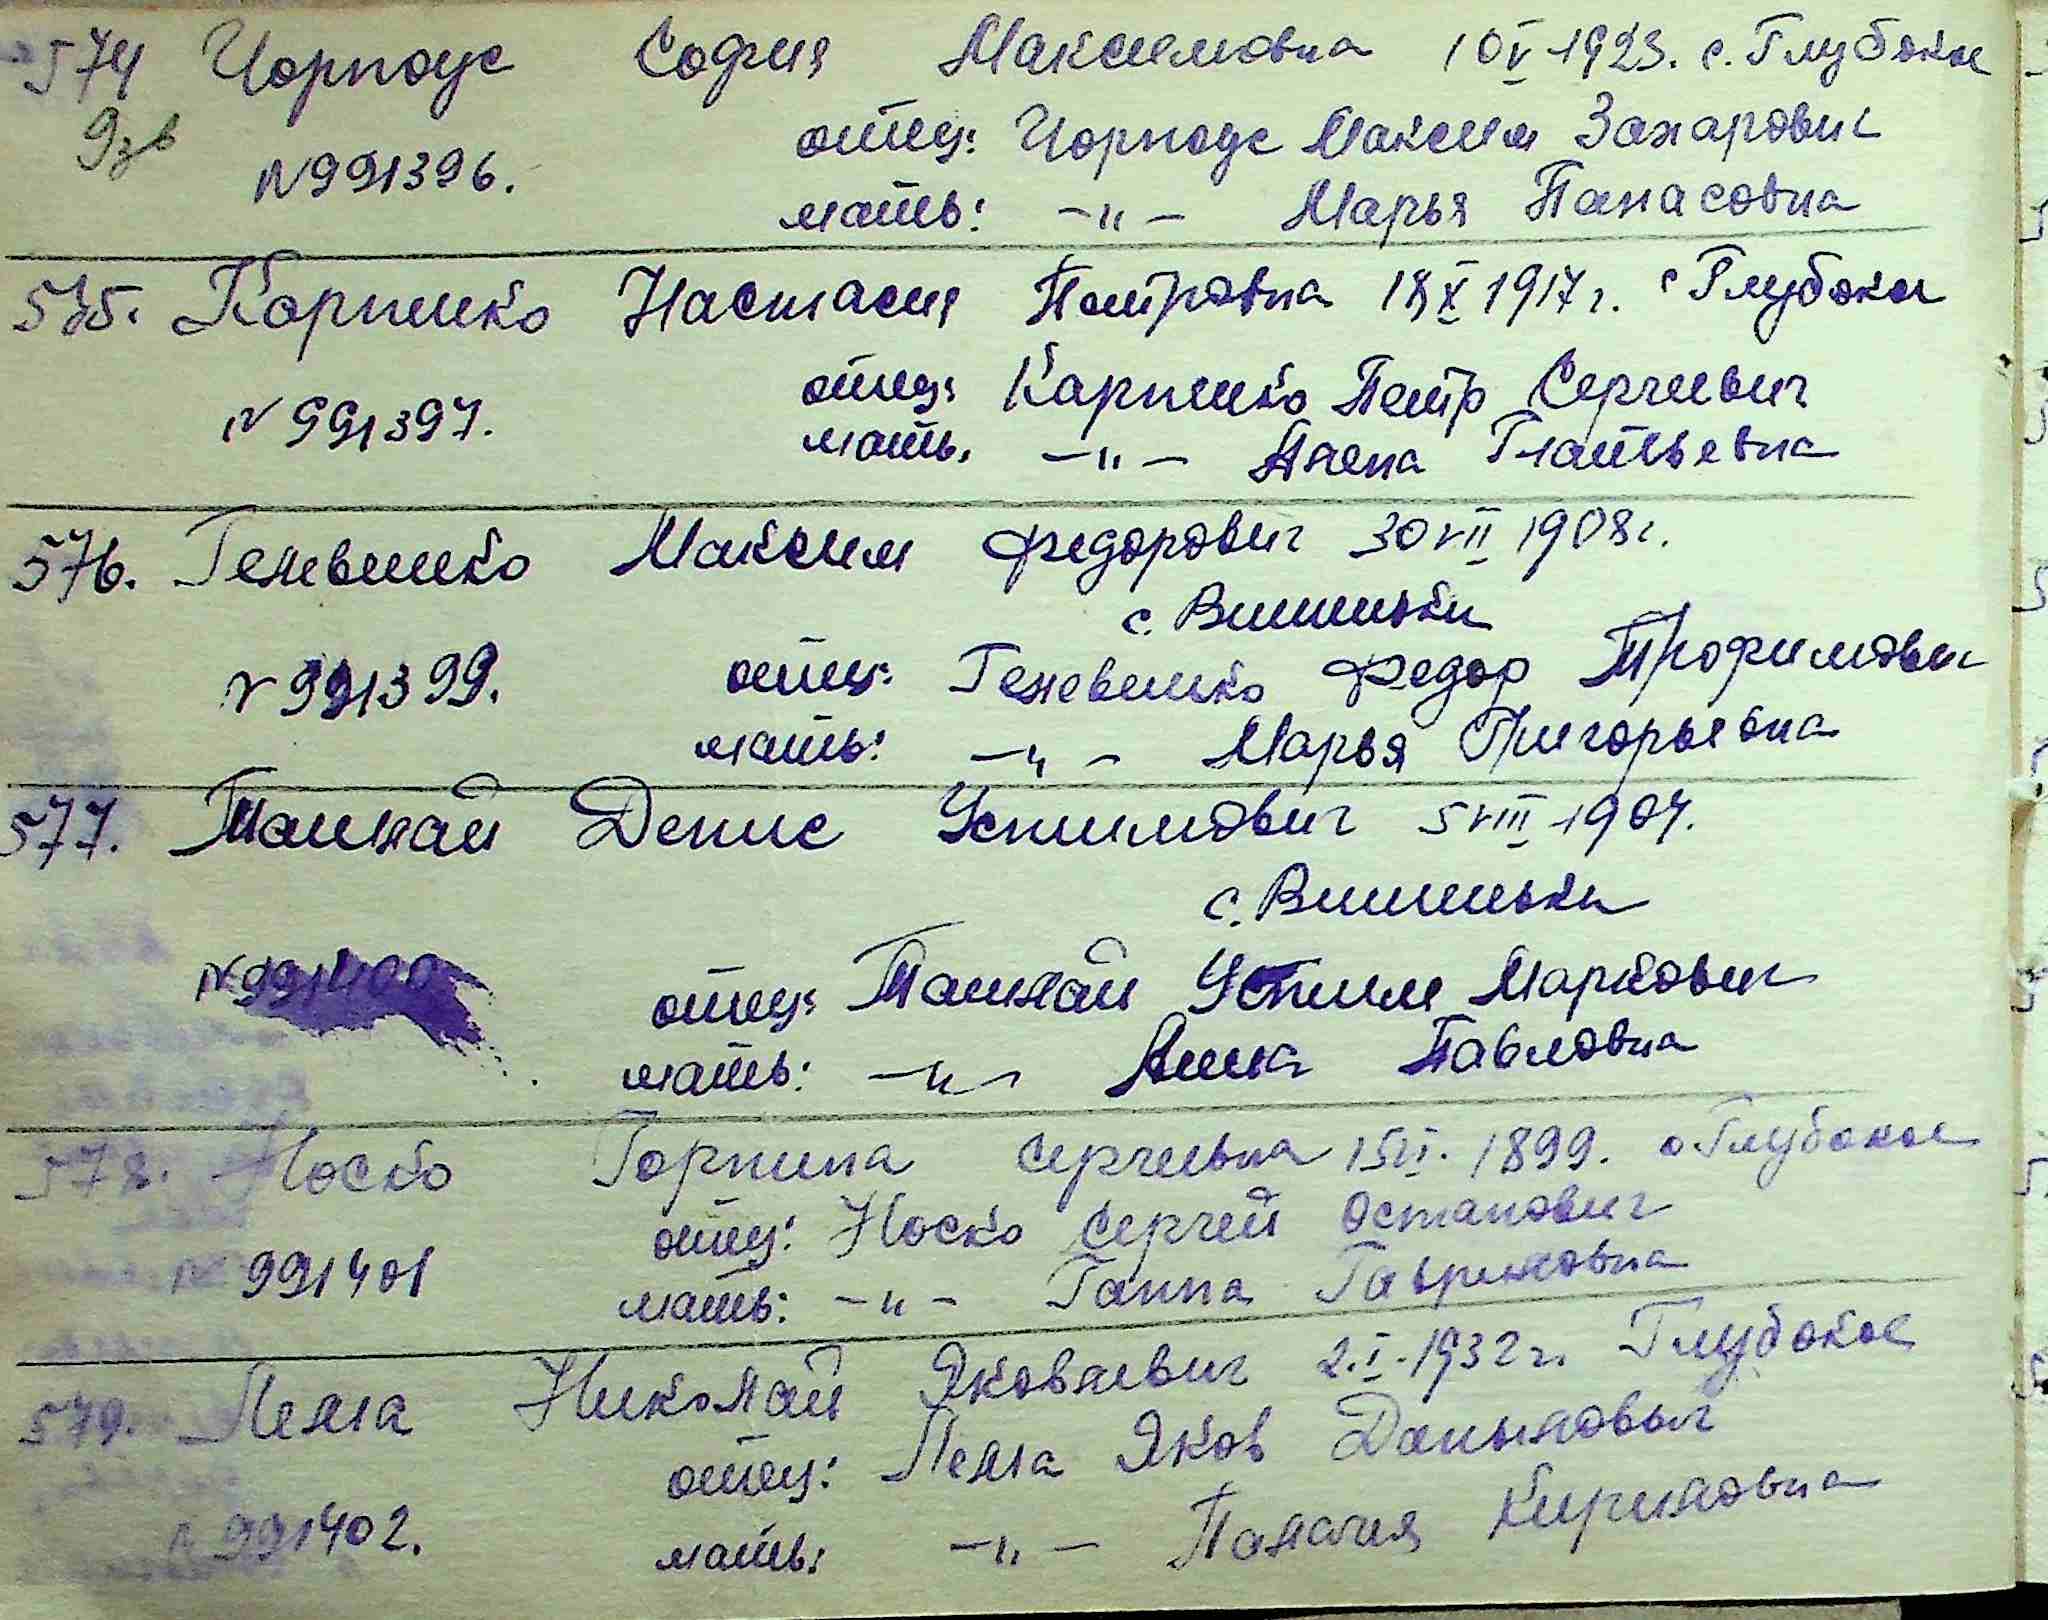 574 Чорноус София Максимовна 10 V 1923. с. Глубокое
отец: Чорноус Максим Захарович
N 991396.
мать: -"- Марья Панасовна
575. Карпенко Настасия Петровна 18 X 1917 г. с Глубокое
отец: Карпенко Петр Сергеевич
N 991397.
мать. -"- Игнатьевна
576. Максим Федорович 30 VII 1908 г.
с. Вишеньки
отец: Федор Трофимович
N 991399.
мать: -"- Марья Григорьевна
577. Ташкай Денис Устимович 5 VIII 1907.
с. Вишеньки
N 991400
отец: Ташкай Устим Маркович
мать: -"- Анна Павловна
578. Носко Горпина Сергеевна 1899. с. Глубокое
отец: Носко Сергей Остапович
N 991401
мать: -"- Ганна Гавриловна
579. Николай Яковлевич 2.I.1932 г. Глубокое
отец: Яков Данылович
N 991402.
мать: -"- Паналия Кириловна